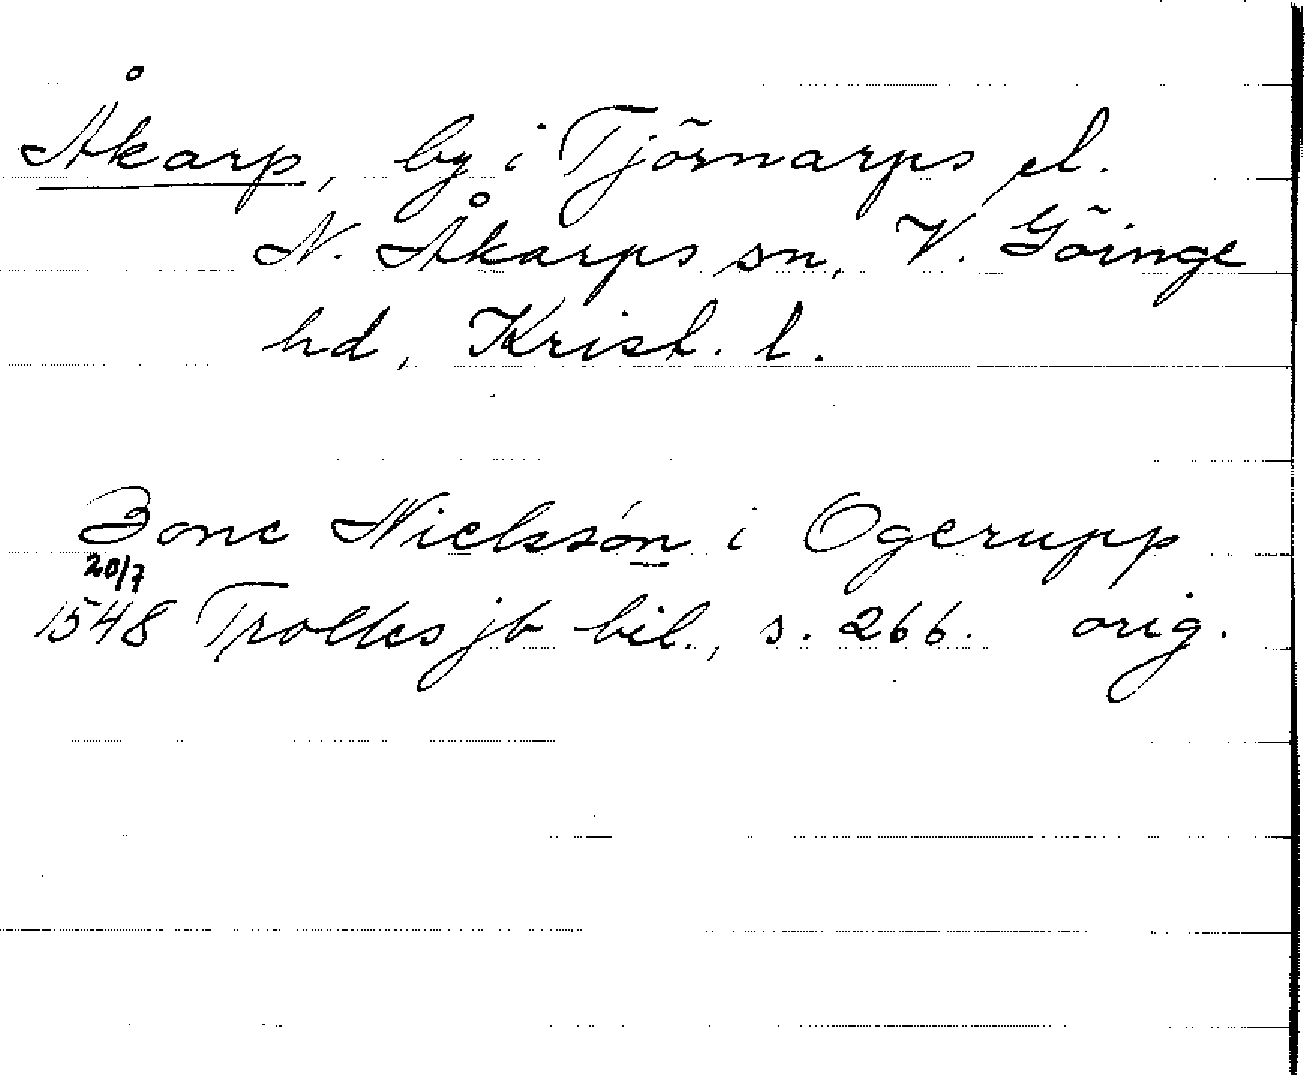 Åkarp, by i Tjörnarps el.
N. Åkarps sn, V. Göinge
hd, Krist. l.
Bone Nielssøn i Ogerupp
20/7
1548 Trolles jb bil., s. 266. orig.